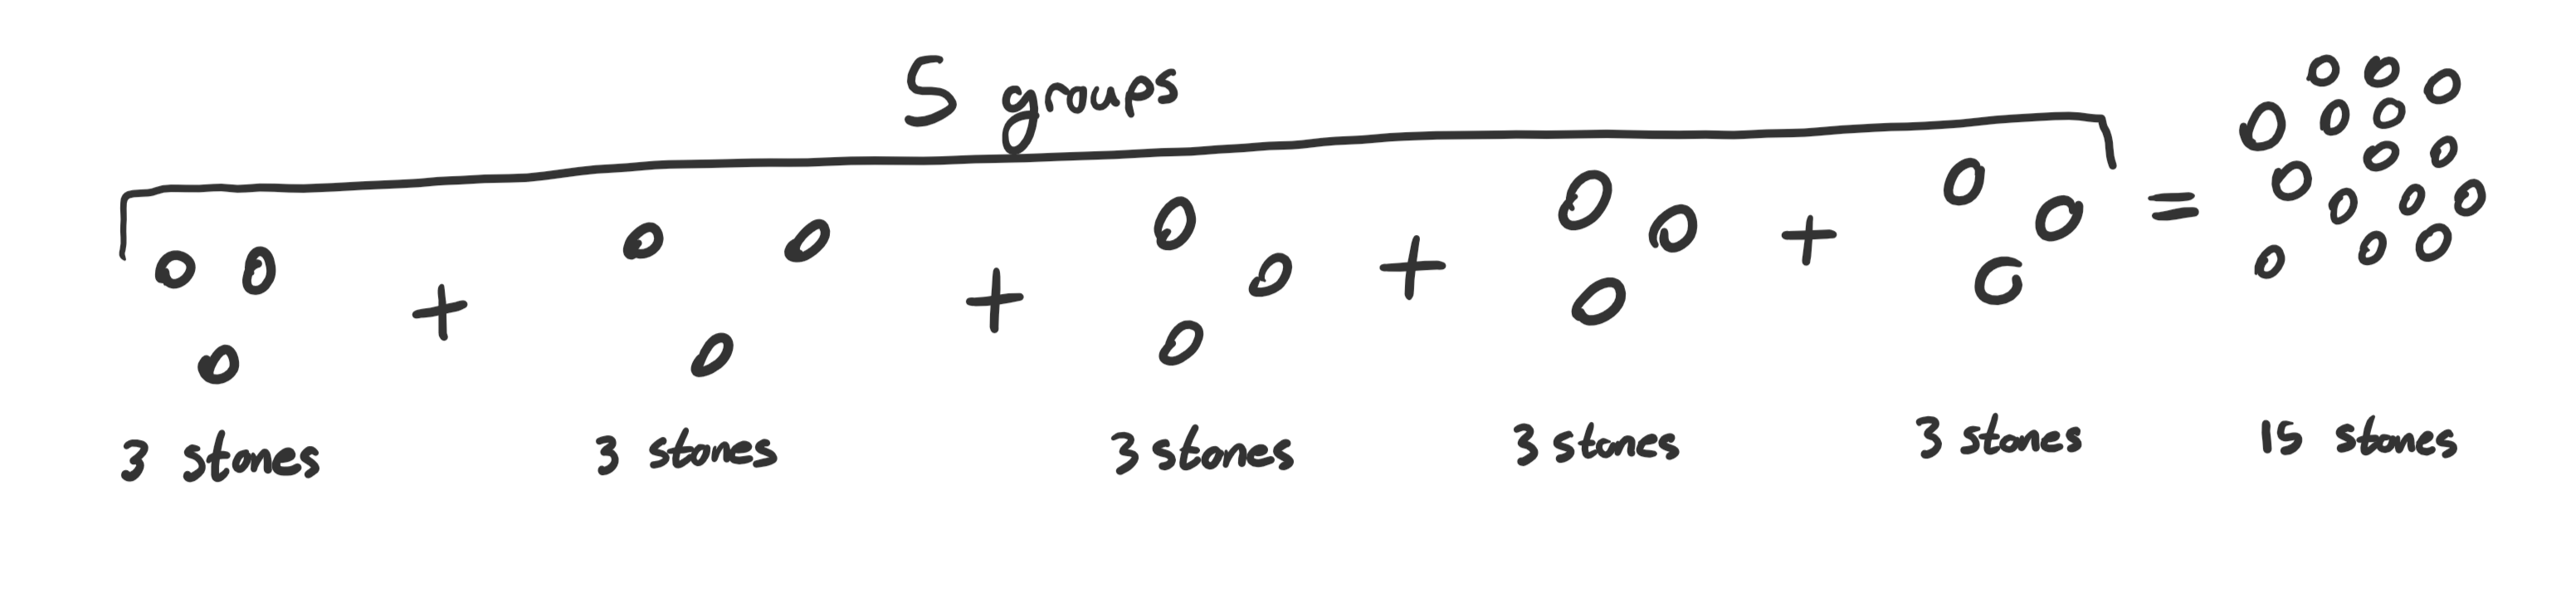 5 groups
+ + + + =
3 stones 3 stones 3 stones 3 stones 3 stones 15 stones